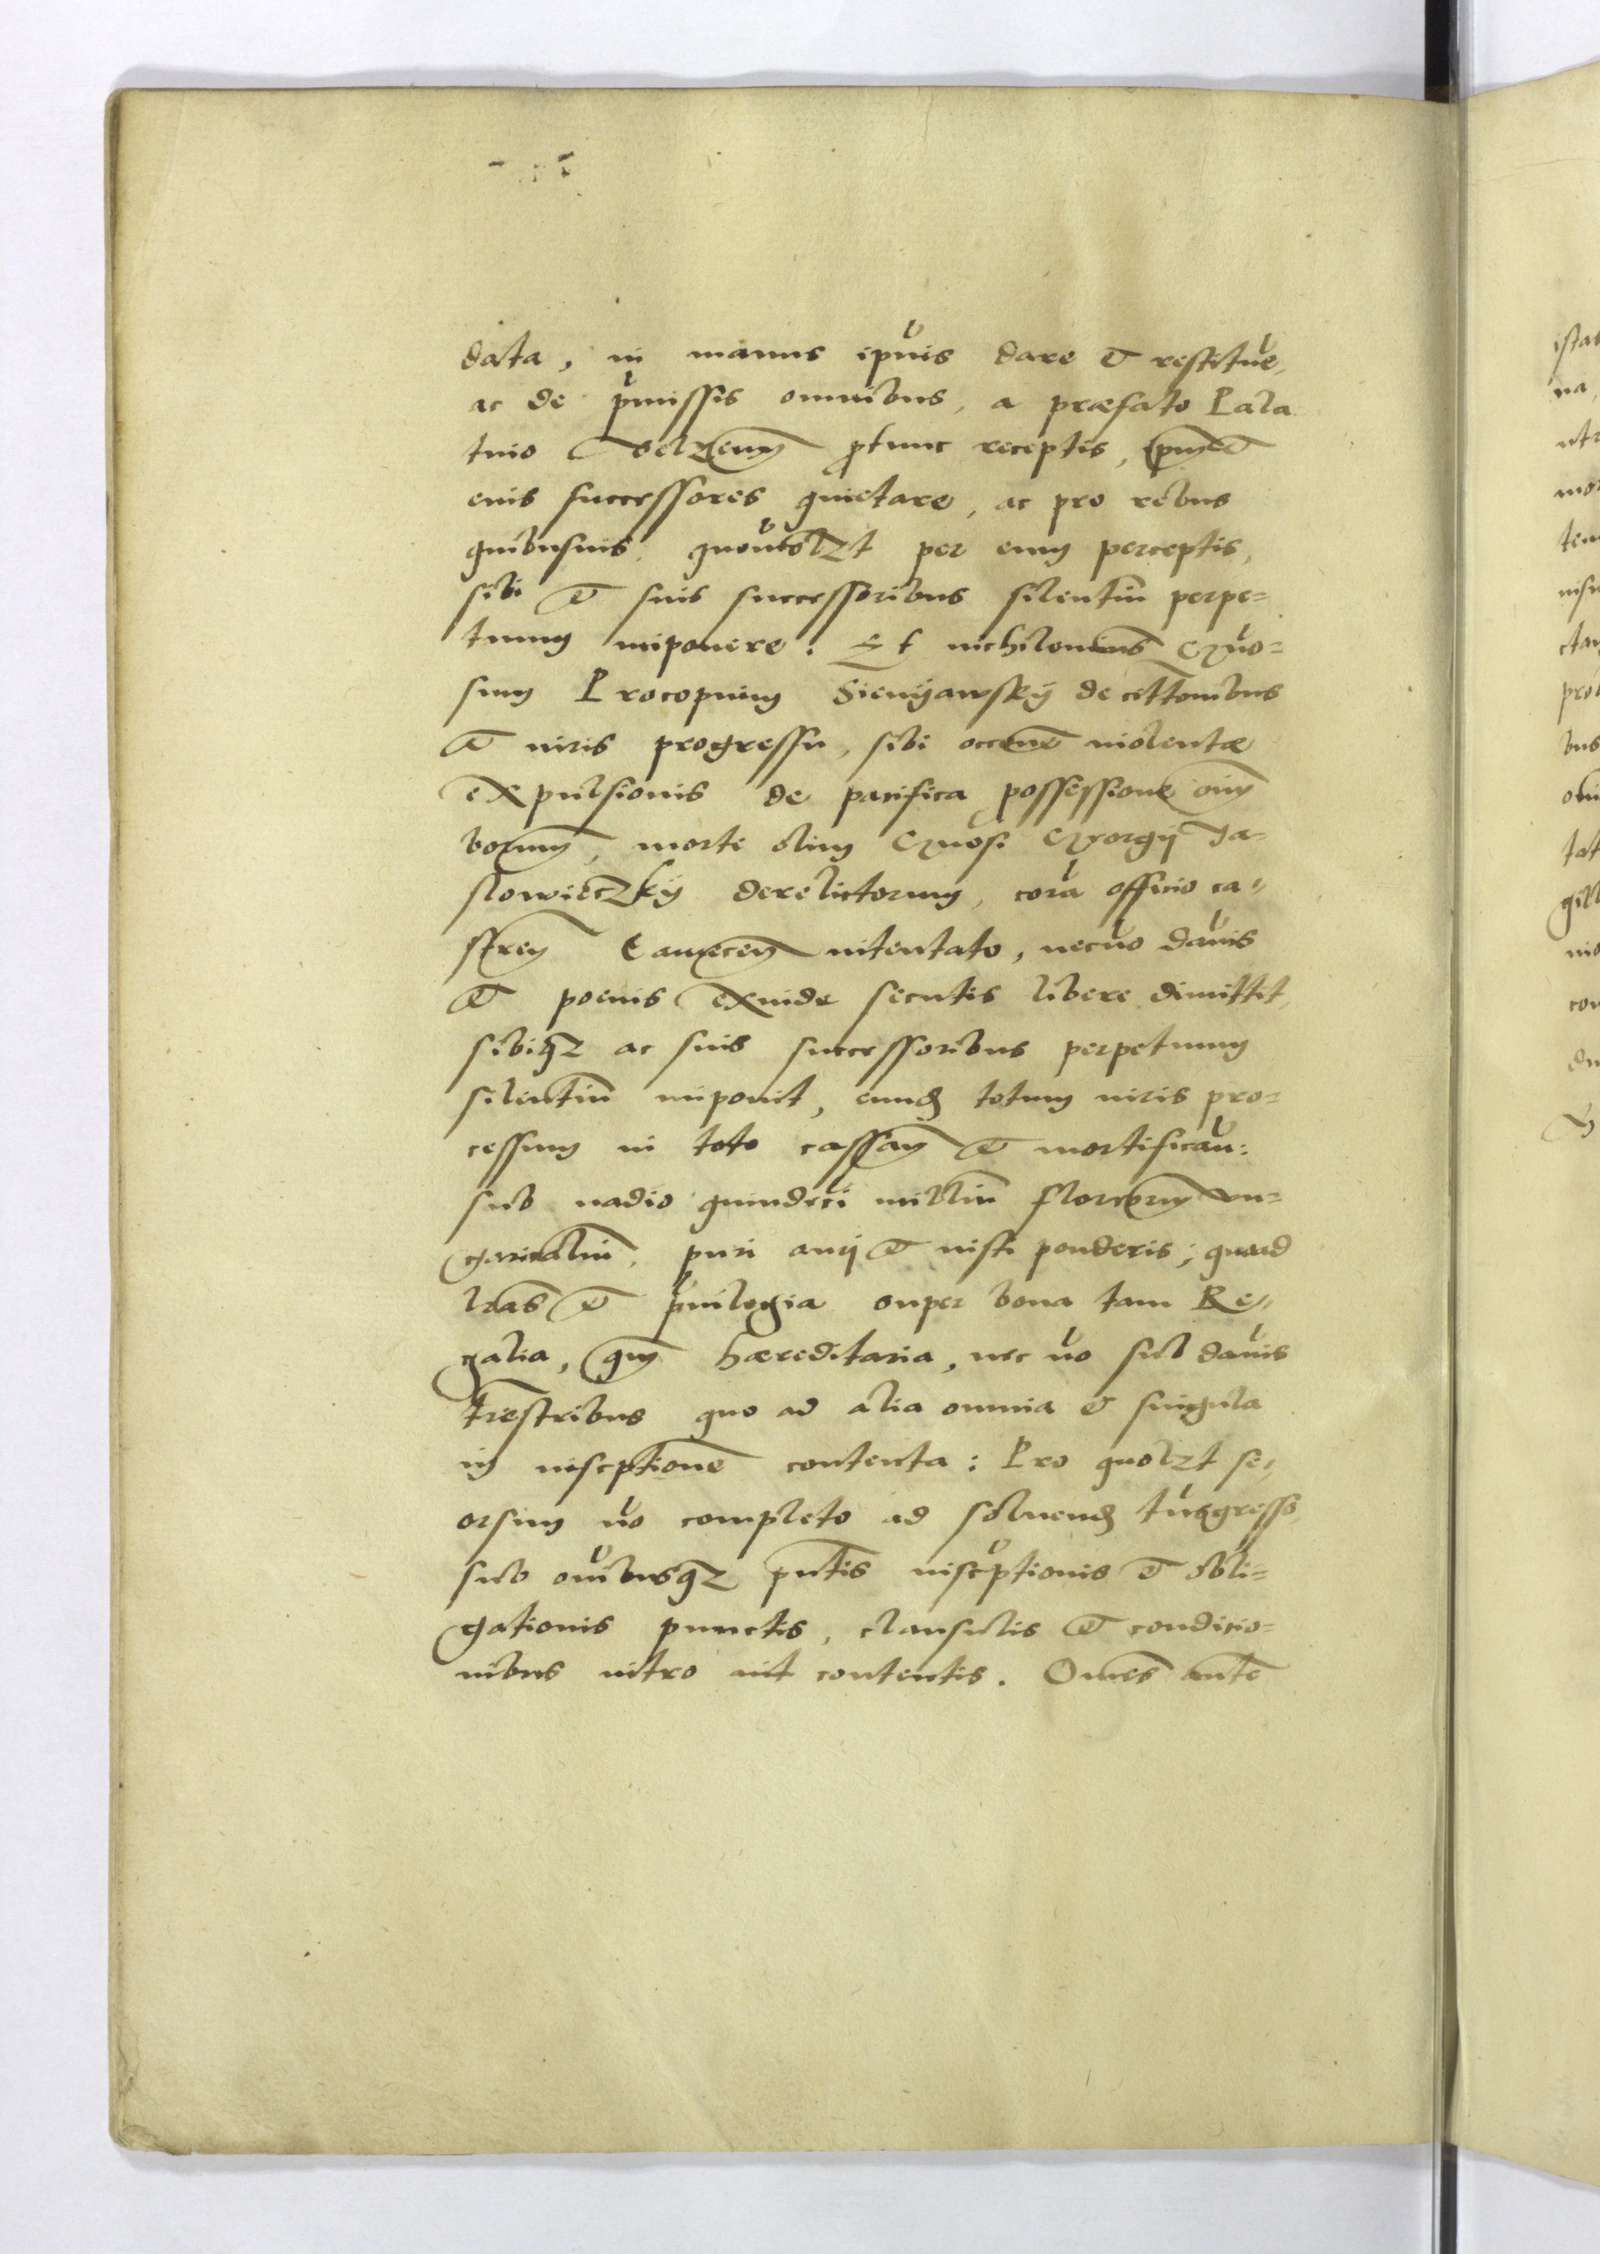 data, in manus ipius dare et restitue,
ac de pmissis omnibus, a præfato Pala
tino Belzen ptunc receptis, ipm et
eius successores quietare, ac pro rebus
quibusuis quouolzt per eum perceptis,
sibi et suis successoribus silentiu perpe=
tuum imponere. Et nichilominus Gnro=
sum Procopium Sienÿawskÿ de cittonibus
et iuris progressu, sibi occne violentæ
expulsionis de pacifica possessione oim
bonorum, morte olim Gnrosi Georgÿ Ja=
slowieczkÿ derelictorum, cora officio ca=
stren Camecen intentato, necno damis
et poenis exinde secutis libere dimittit,
sibiqz ac suis successoribus perpetuum
silentiu imponit, eund totum iuris pro=
cessum in toto cassan et mortifican:
sub vadio quindeci milliu florenorum Un=
garicaliu, puri auri et iusti ponderis; quoad
lras et puilegia super bona tam Re=
galia, qm hæreditaria, nec no sul damis
trestribus quo ad alia omnia et singula
in inscptione contenta: Pro quolzt se=
orsim no completo ad soluend tnsgresso,
sub oibusqz pntis inscptionis et obli=
gationis punctis, clausulis et conditio=
nibus intro int contentis. Omes ante